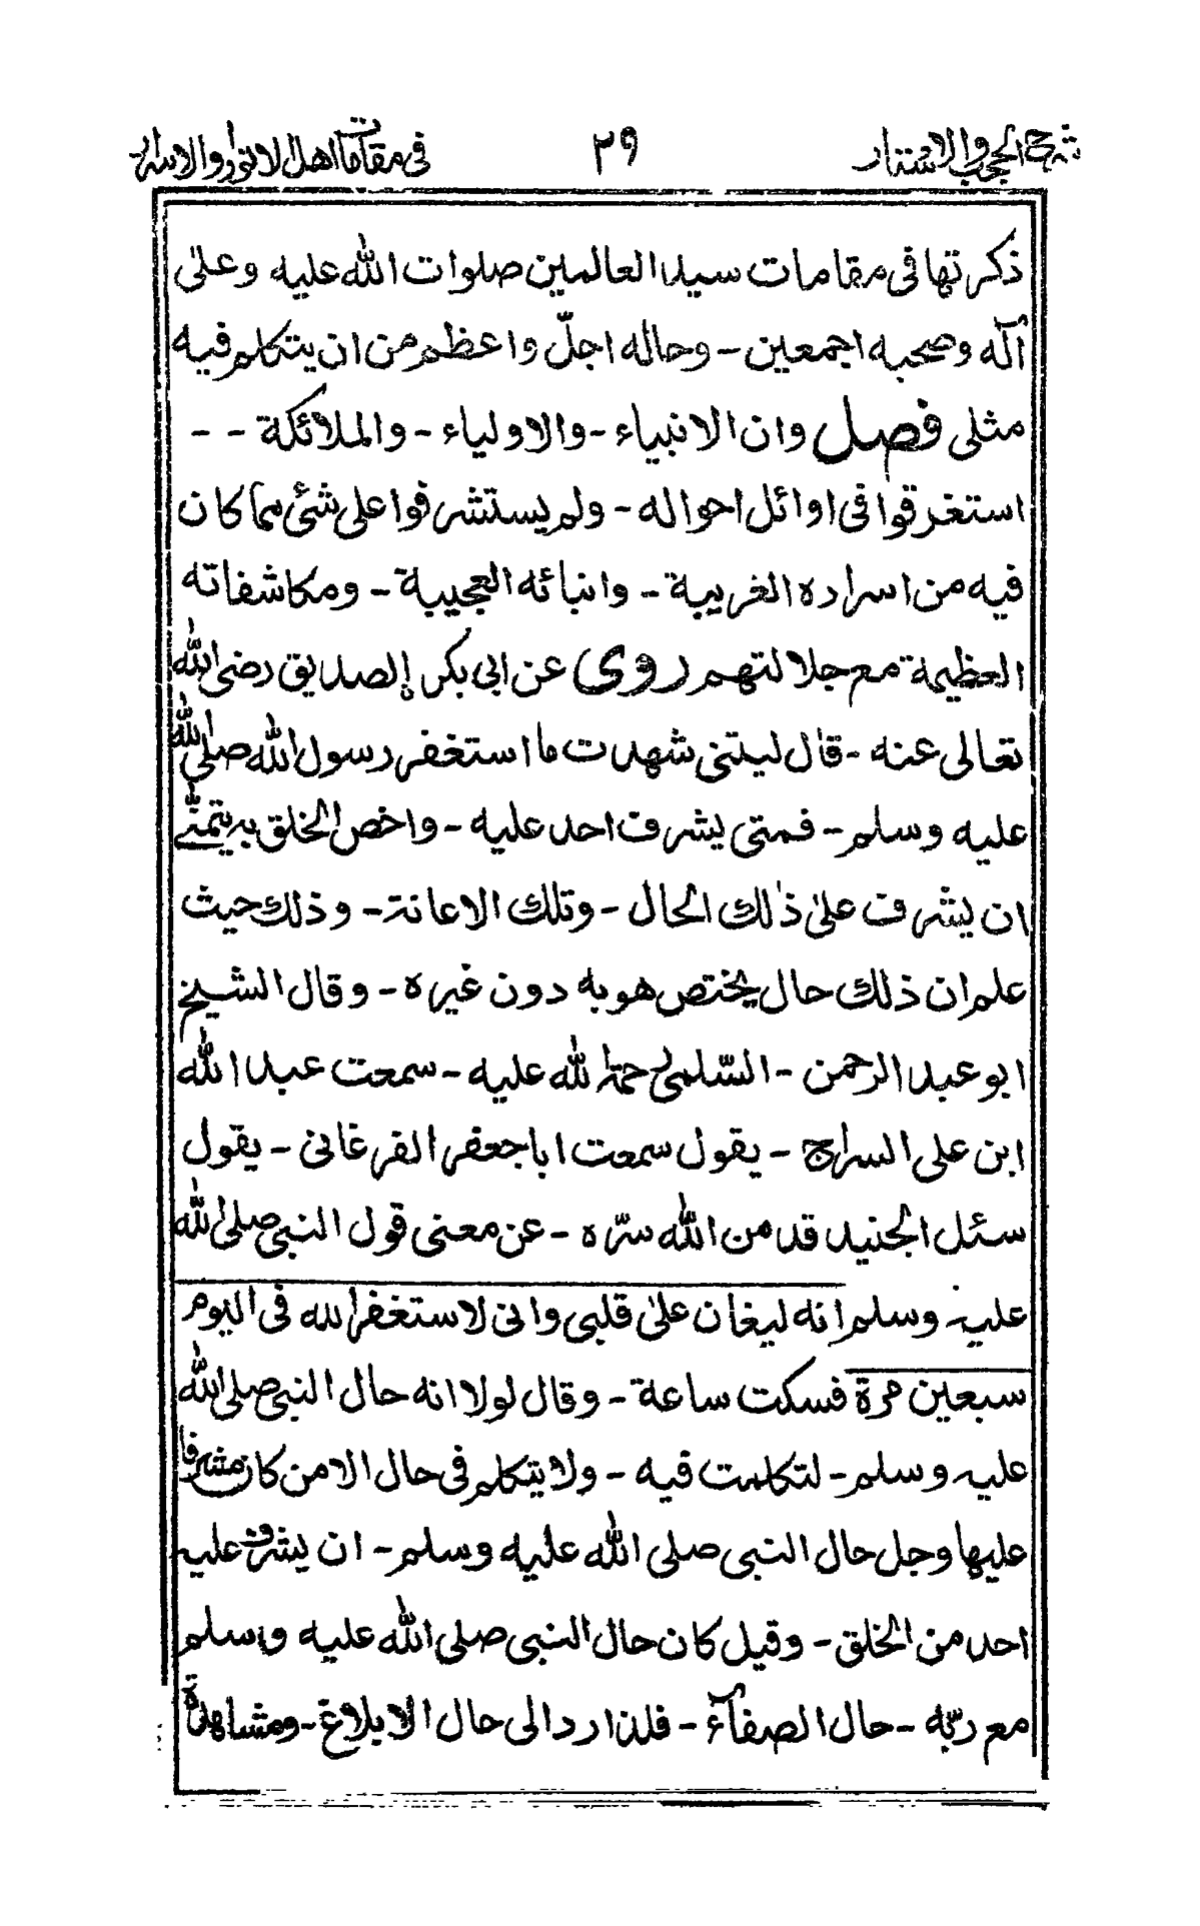 شرح الحجب والاستار ٢٩ فى مقامات اهل الانوار والاسرار
ذكرتها فى مقامات سيد العالمين صلوات الله عليه وعلىٰ
آله وصحبه اجمعين - وحاله اجلّ واعظم من ان يتكلم فيه
مثلى فصل وان الانبياء - والاولياء - والملائكة - -
استغرقوا فى اوائل احواله - ولم يستشرفوا على شئ مما كان
فيه من اسراره الغريبة - وانبائه العجيبة - ومكاشفاته
العظيمة مع جلالتهم روى عن ابى بكر الصديق رضى الله
تعالى عنه - قال ليتنى شهدت ما استغفر رسول الله صلى الله
عليه وسلم - فمتى يشرف احد عليه - واخص الخلق به يتمنّے
ان يشرف علىٰ ذٰلك الحال - وتلك الاعانة - وذلك حيث
علم ان ذلك حال يختص هو به دون غيره - وقال الشيخ
ابو عبد الرحمن - السّلمى رحمة الله عليه - سمعت عبد الله
ابن على السراج - يقول سمعت ابا جعفر الفرغانى - يقول
سئل الجنيد قدمن الله سرّه - عن معنى قول النبى صلى الله
عليه وسلم انه ليغان علىٰ قلبى وانى لاستغفر الله فى اليوم
سبعين مرة فسكت ساعة - وقال لولا انه حال النبى صلى الله
عليه وسلم - لتكلمت فيه - ولا يتكلم فى حال الا من كان مشرفا
عليها وجل حال النبى صلى الله عليه وسلم - ان يشرف عليه
احد من الخلق - وقيل كان حال النبى صلى الله عليه وسلم
مع ربّه - حال الصفآء - فلذا رد الى حال الابلاغ - ومشاهدة